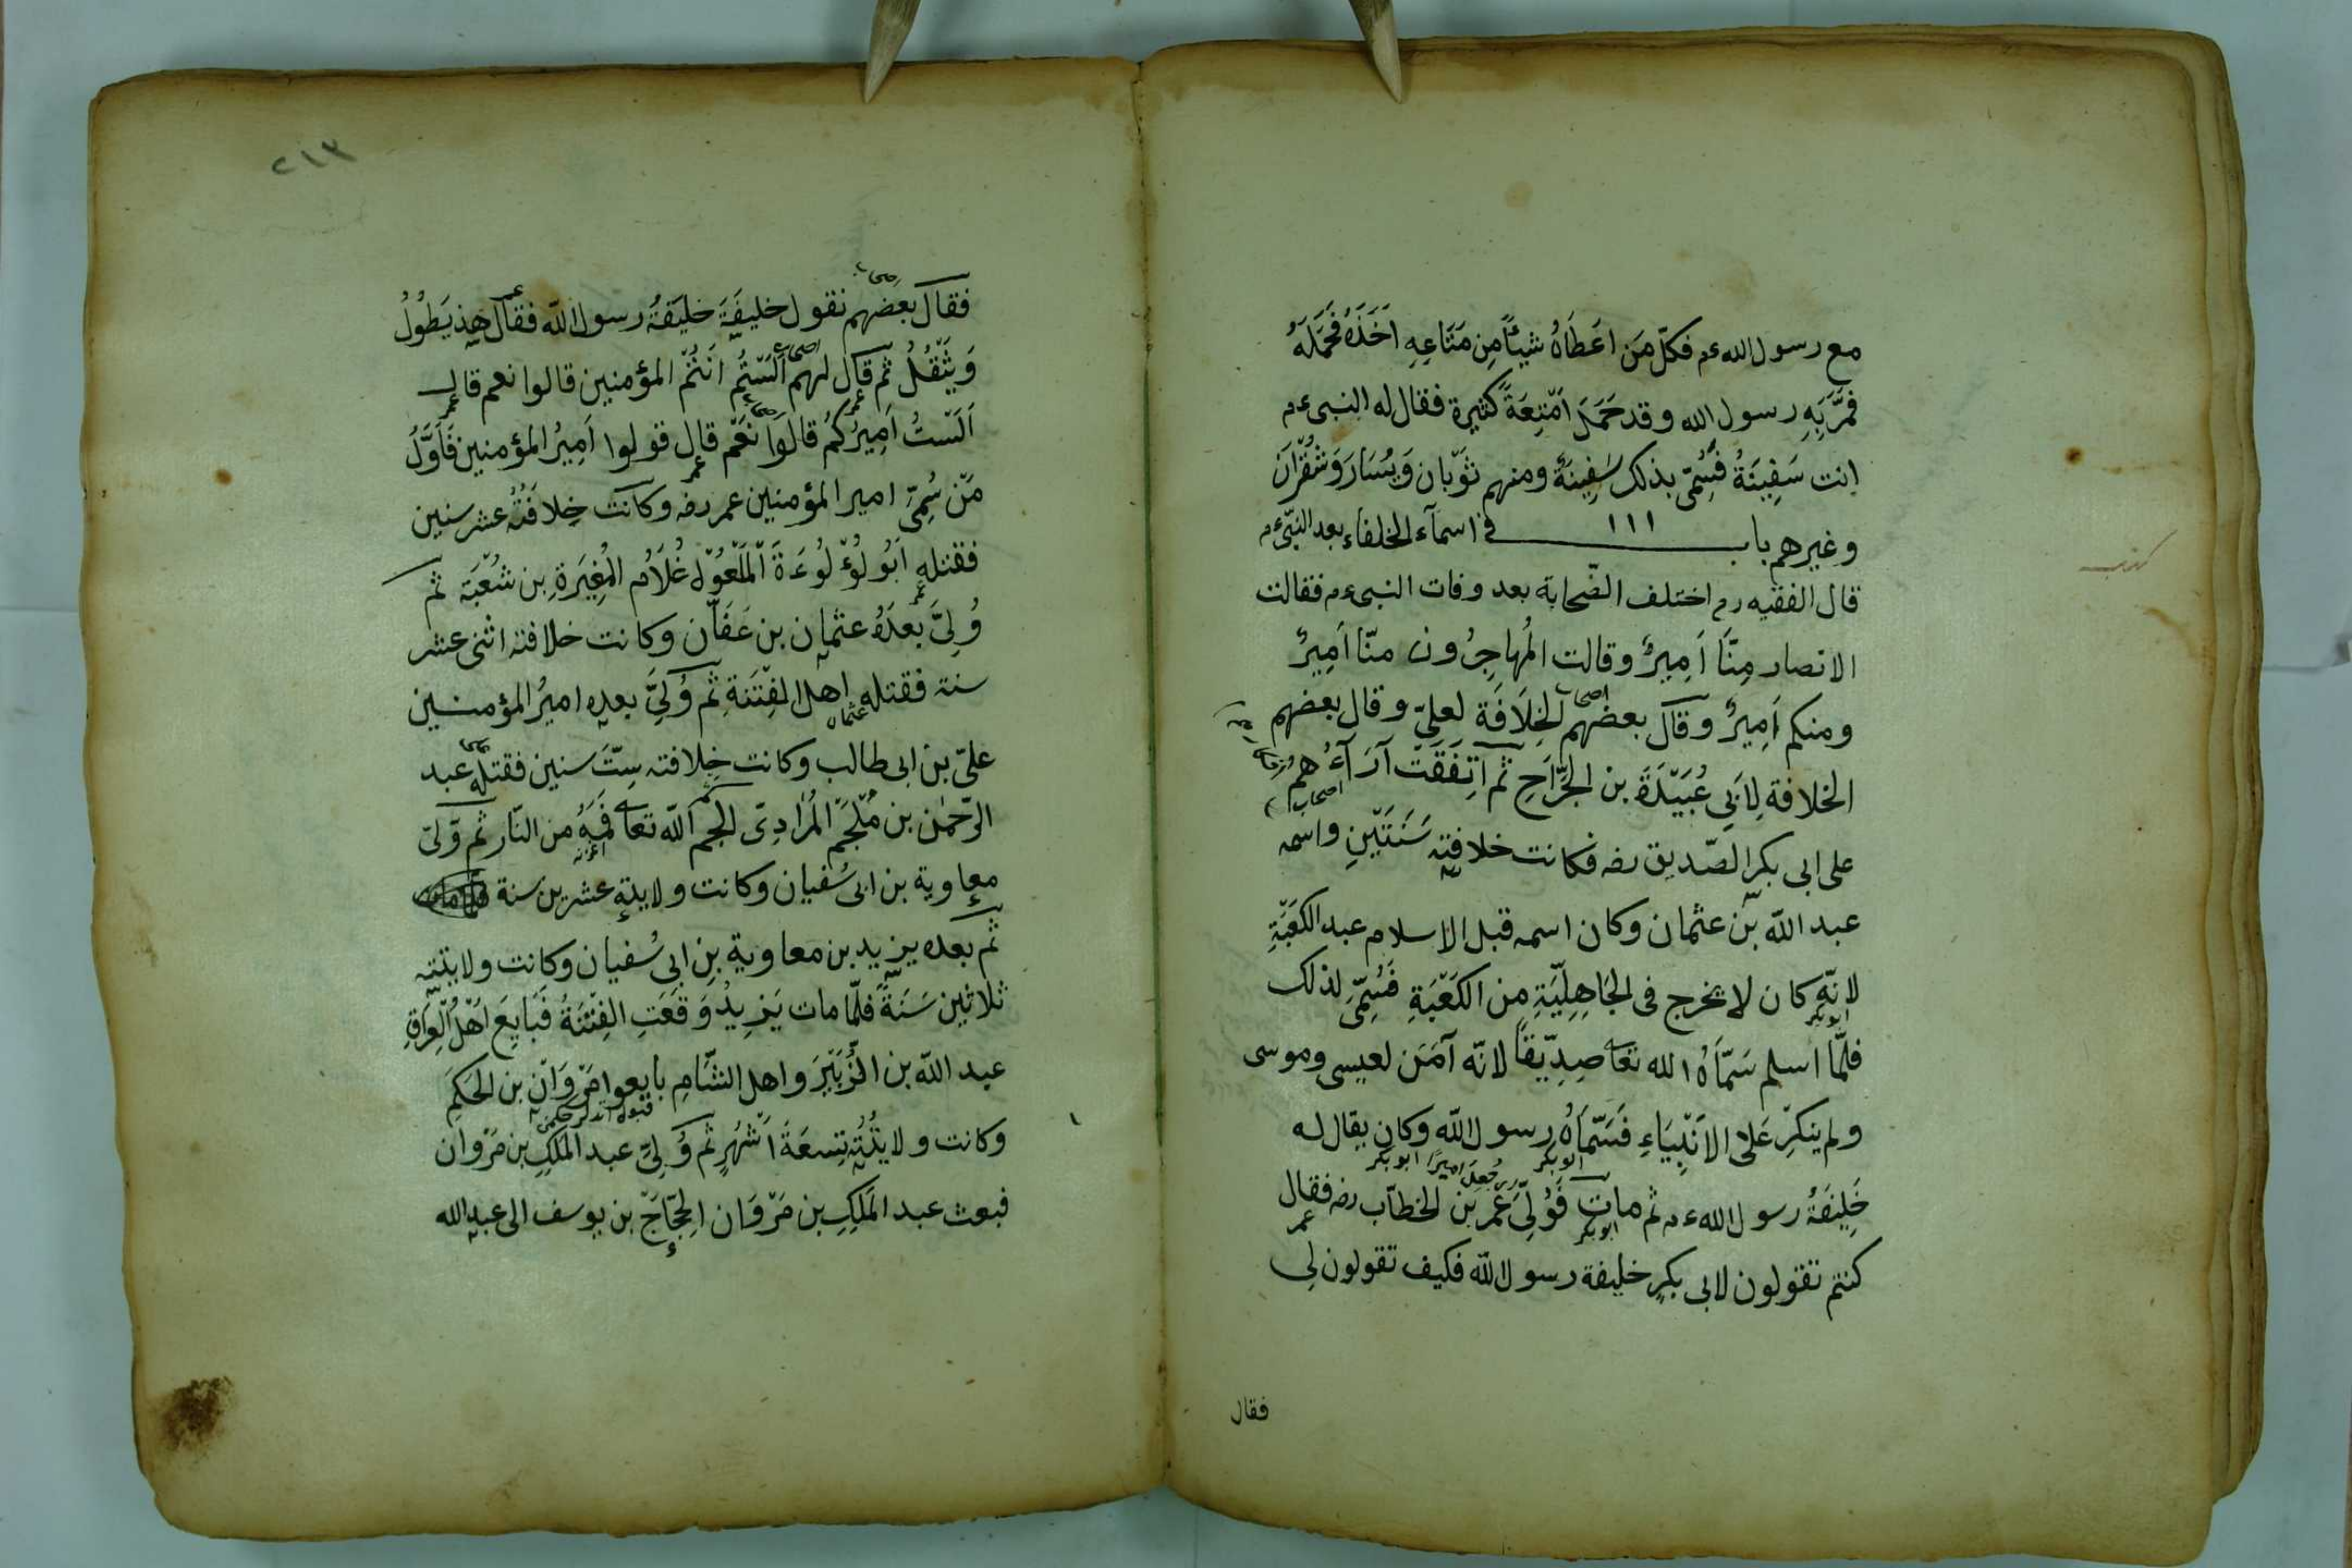 مع رسول الله ءم فكلّ مَن اعَطَاهُ شيئاً مِن مَتَاعِهِ اَخَذَهُ فَحَمَلَهُ
فَمَرَّ بِهِ رسول الله وقد حَمَلَ اَمْتِعَةً كثيرة فقال له النبى ءم
انت سَفِينَةُ فَسُمِّى بذلك سَفِينَةً ومنهم ثَوْبان وَيسَار وَشُقْرَان
وغيرهم باب ١١١ فى اسمآء الخلفاء بعد النّبىّ ءم
قال الفقيه رح اختلف الصّحابة بعد وفات النبى ءم فقالت
الانصار مِنَّا اَمِيرٌ وقالت المُهاجِرُون منّا اَمِيرٌ
ومنكم اَمِيرٌ وقال بعضهم الخِلَافَة لعلىّ وقال بعضهم
الخلافة لِاَبِى عُبَيْدَةَ بن الجَرَّاحِ ثم اتِفَقَتْ آرَآءُ هُمْ
على ابى بكر الصّديق رضه فكانت خلافته سَنَتَيْنِ واسمه
عبد الله بن عثمان وكان اسمه قبل الاسلام عبد الكَعْبَةِ
لانّه كان لا يخرج فى الجَاهِلِيَّةِ مِن الكَعْبَةِ فَسُمِّىَ لذلك
فلمّا اسلم سَمَّاهُ الله تعا صِدِّيقًا لانّه آمَنَ لعيسى وموسى
ولم ينكِرْ عَلى الاَنْبِيَاءِ فَسَمَّاهُ رسول الله وكان يقال له
خَلِيفَةُ رسول الله ءم ثم مات فَوُلِّىَ عُمَر بن الخطاّب رضه فقال
كنتم تقولون لابى بكرٍ خليفة رسول الله فكيف تقولون لِى
فقال
٢١٣
فقال بعضهم نقول خليفَةَ خليَفةُ رسول الله فقال هذ يَطُولُ
وَيثَقُلُ ثم قال لهم اَلَسْتُم اَنْتُمْ المؤمنين قالوا نعم قال
اَلَسْتُ اَمِيرُكُم قالوا نَعَمْ قال قولوا اَمِيرُ المؤمنين فَاَوَّلُ
مَنْ سُمِّىَ امير المؤمنين عمر رضه وكانت خِلافَتُهُ عشر سنين
فقتله اَبُو لُؤْلُوءَةَ الْمَلْعُوْن غُلَامُ المُغِيَرةِ بن شُعْبَة ثم
وُلِىَّ بعدَهُ عثمان بن عَفَّان وكانت خلافته اثنى عشر
سنة فقتله اهل الفِتْنَةِ ثم وُلِىَّ بعده اميرُ المؤمنين
علىّ بن ابى طالب وكانت خِلافته سِتّ سنين فقتله عبد
الرّحمٰن بن مُلْجَم المُرَادِىّ الجم الله تعا فَمَهُ من النّار ثم وَلىّ
معاوية بن ابى سُفيان وكانت ولايته عشرين سنة
ثم بعده يزيد بن معاوية بنِ ابى سُفيان وكانت ولايتته
ثلاثين سَنَةً فلمّا مات يَزِيدُ وَقَعَتِ الفِتْنَةُ فَبَايعَ اَهْلُ العِرَاقِ
عبد الله بن الزُّبَيْرَ واهل الشَّامِ بايعوا مَرْوَان بن الحَكِمَ
وكانت ولايتُتُه تِسعَةَ اَشْهُرٍ ثم وُلِىَّ عبد المَلَكِ بن مَرْوان
فبعث عبد المَلَكِ بن مَرْوَان الحَجَّاجَ بن يوسف الى عبد الله